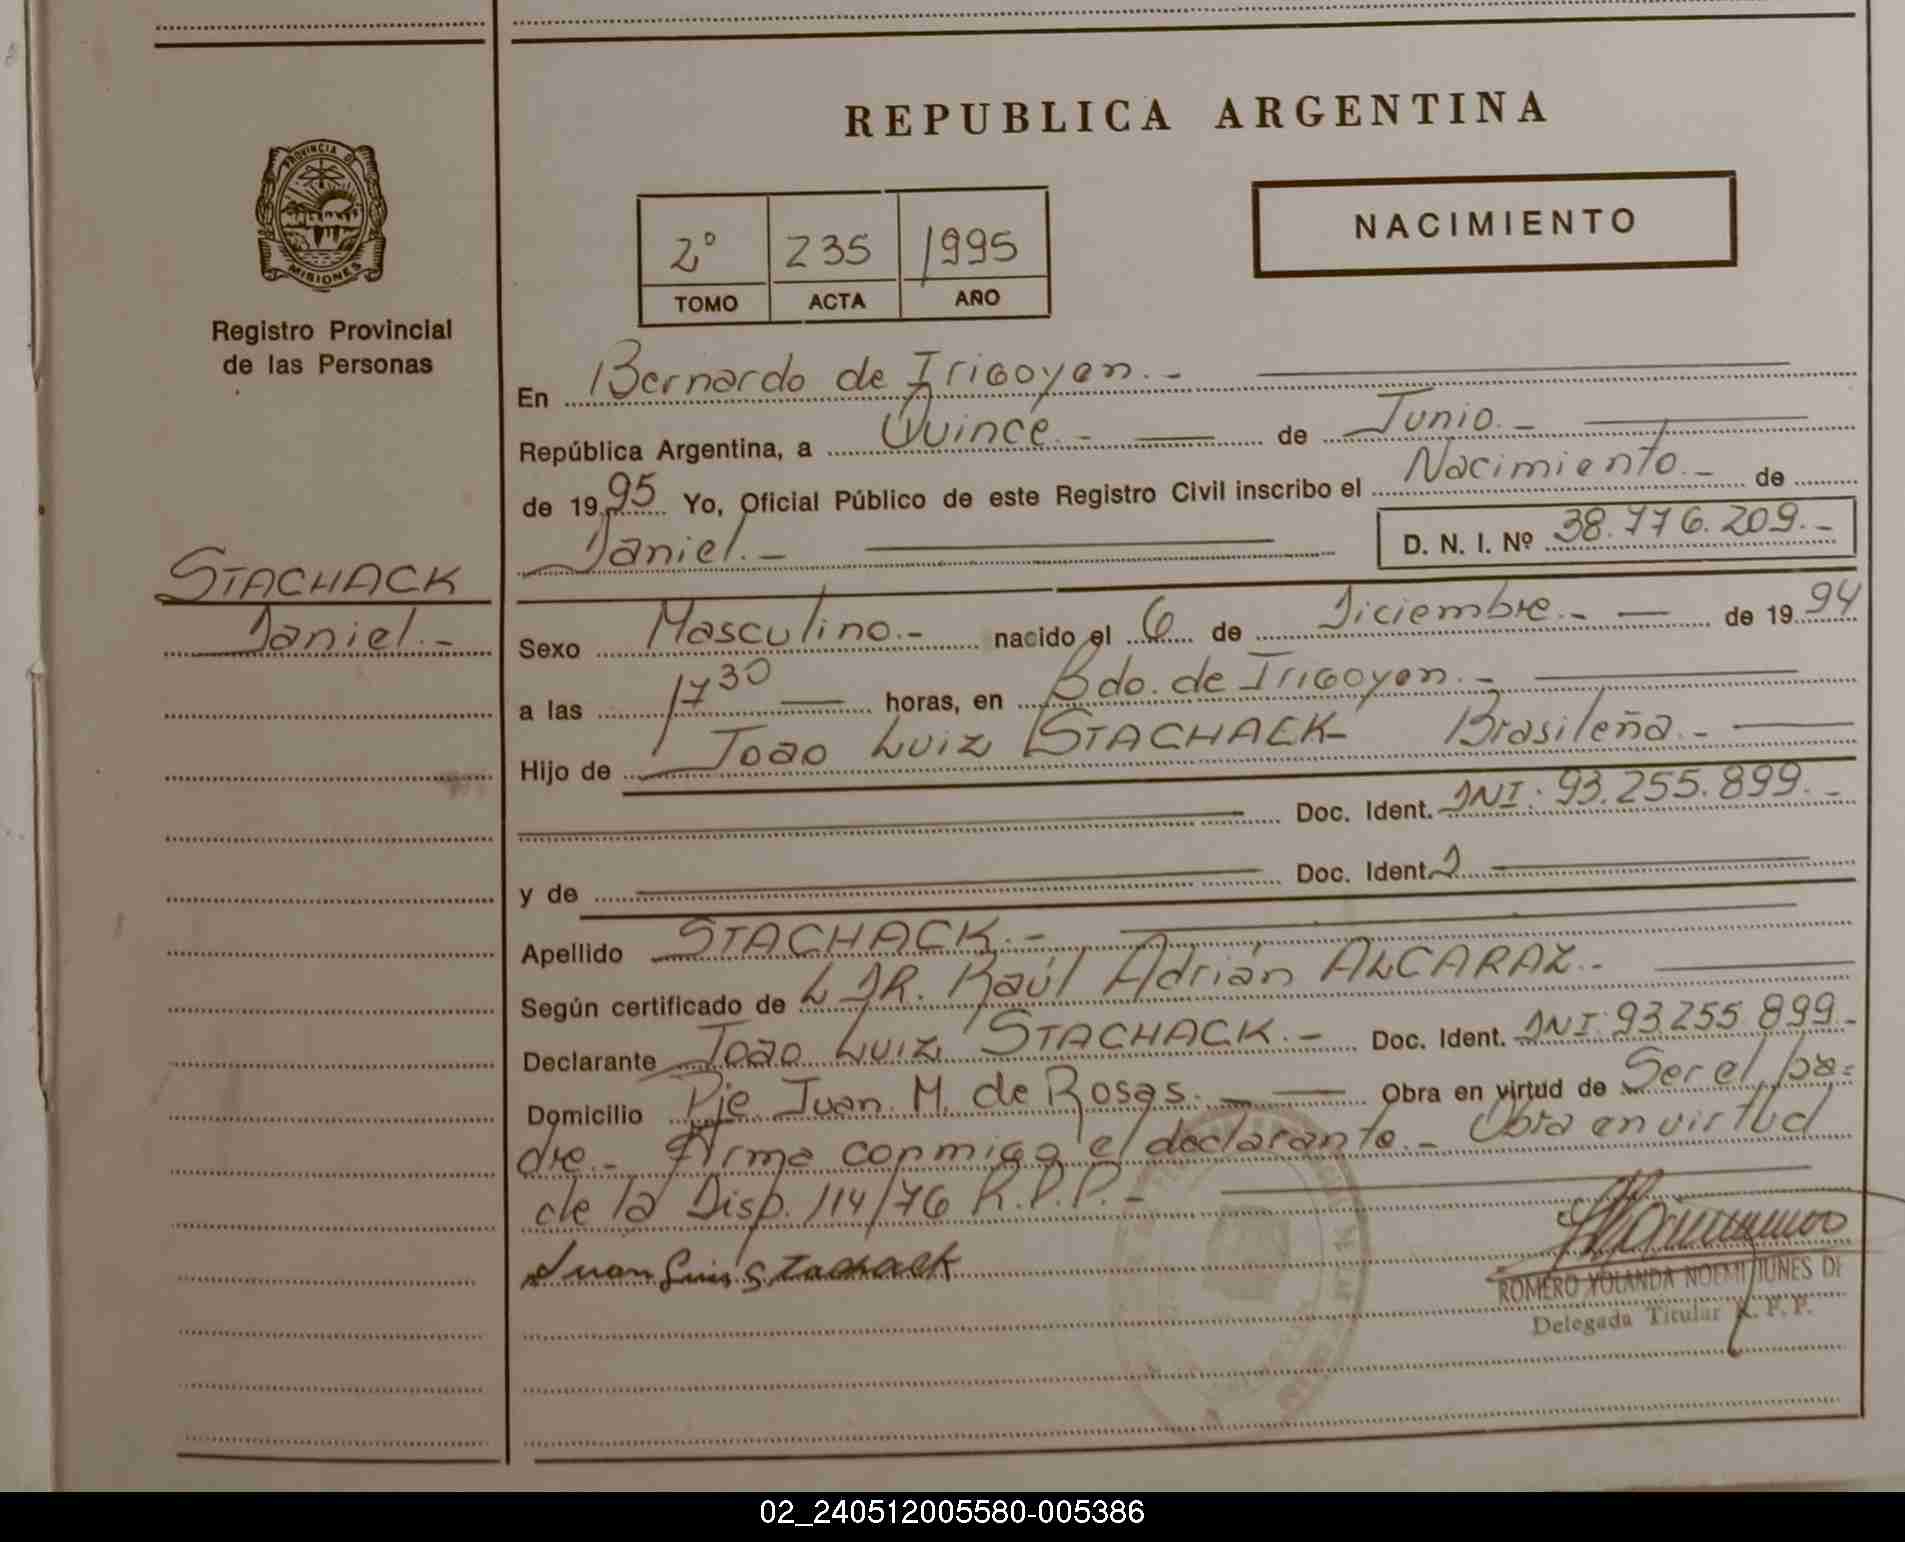 REPUBLICA ARGENTINA
PROVINCIA DE
MISIONES
Registro Provincial
de las Personas
2º 235 1995
TOMO ACTA AÑO
NACIMIENTO
STACHACK
Daniel.-
En Bernardo de Irigoyen.-
República Argentina, a Quince.- de Junio.-
de 1995 Yo, Oficial Público de este Registro Civil inscribo el Nacimiento.- de
Daniel.- D. N. I. Nº 38.776.209.-
Sexo Masculino.- nacido el 6 de Diciembre.- de 1994
a las 17 30 horas, en Bdo. de Irigoyen.-
Hijo de Joao Luiz STACHACK Brasileña.-
Doc. Ident. DNI: 93.255.899.-
y de Doc. Ident.
Apellido STACHACK.-
Según certificado de DR. Raúl Adrián ALCARAZ.-
Declarante Joao Luiz STACHACK.- Doc. Ident. DNI: 93.255.899.-
Domicilio Pje Juan M. de Rosas.- Obra en virtud de Ser el pa-
dre.- Firma conmigo el declarante.- Obra en virtud
de la Disp. 114/76 R.P.P.-
Juan Luis Stachack
ROMERO YOLANDA NOEMI DE
Delegada Titular R. P. P.
02_240512005580-005386